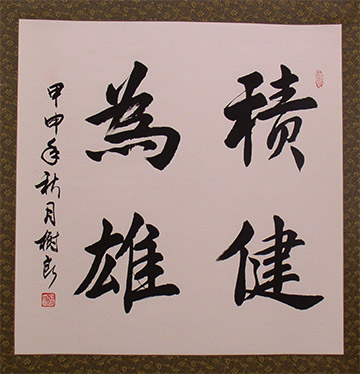 積健
為雄
甲申年秋月樹良